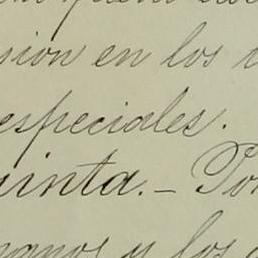 sion en los
especiales.
uinta. — Po
manos y los